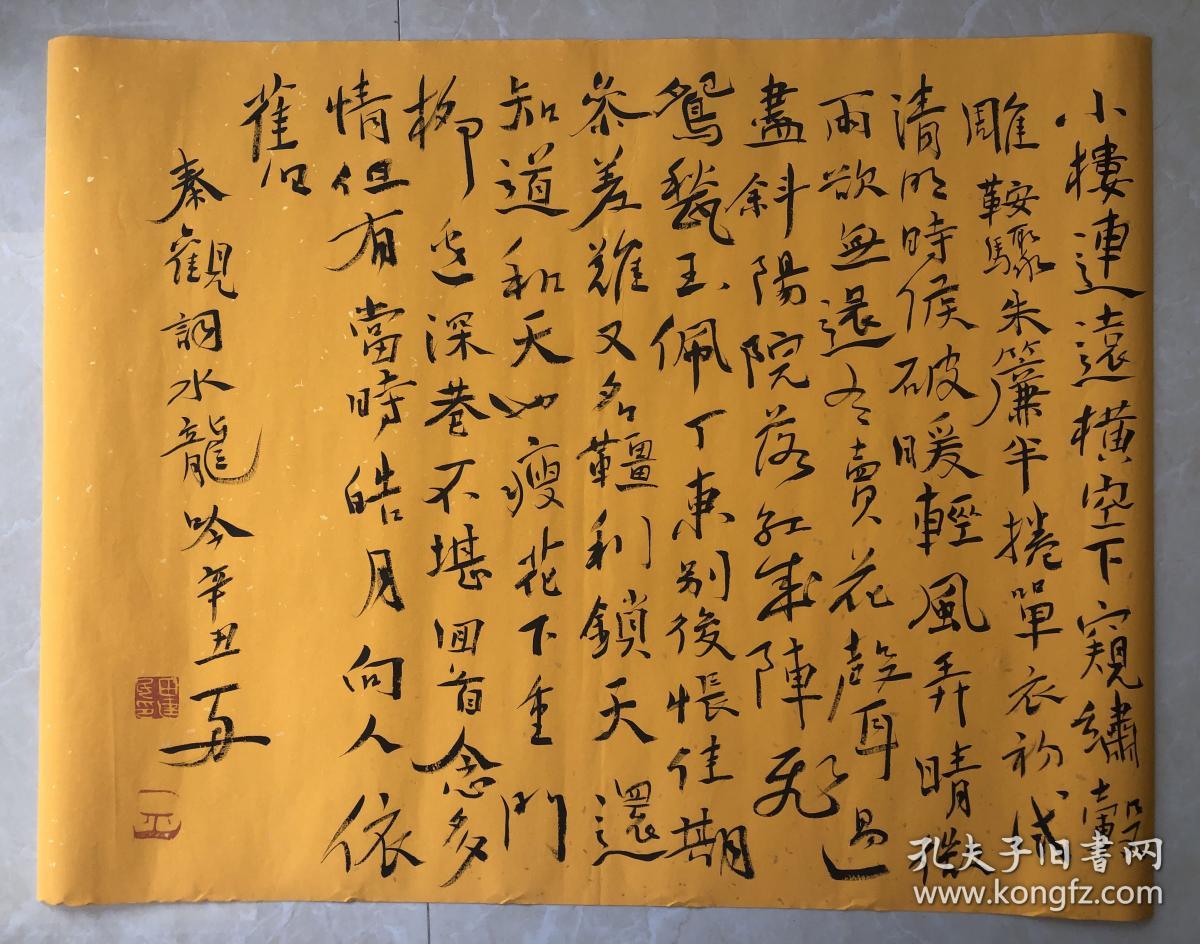 小樓連遠橫空下窺繡轂
雕鞍驟朱簾半捲單衣初試
清明時候破暖輕風弄晴微
雨欲無還有賣花聲耳過
盡斜陽院落紅成陣飛
鴛甃玉佩丁東別後悵佳期
參差難又名韁利鎖天還
知道和天也瘦花下重門
柳邊深巷不堪回首念多
情但有當時皓月向人依
舊
秦觀詞水龍吟辛丑
一平
孔夫子旧书网
www.kongfz.com